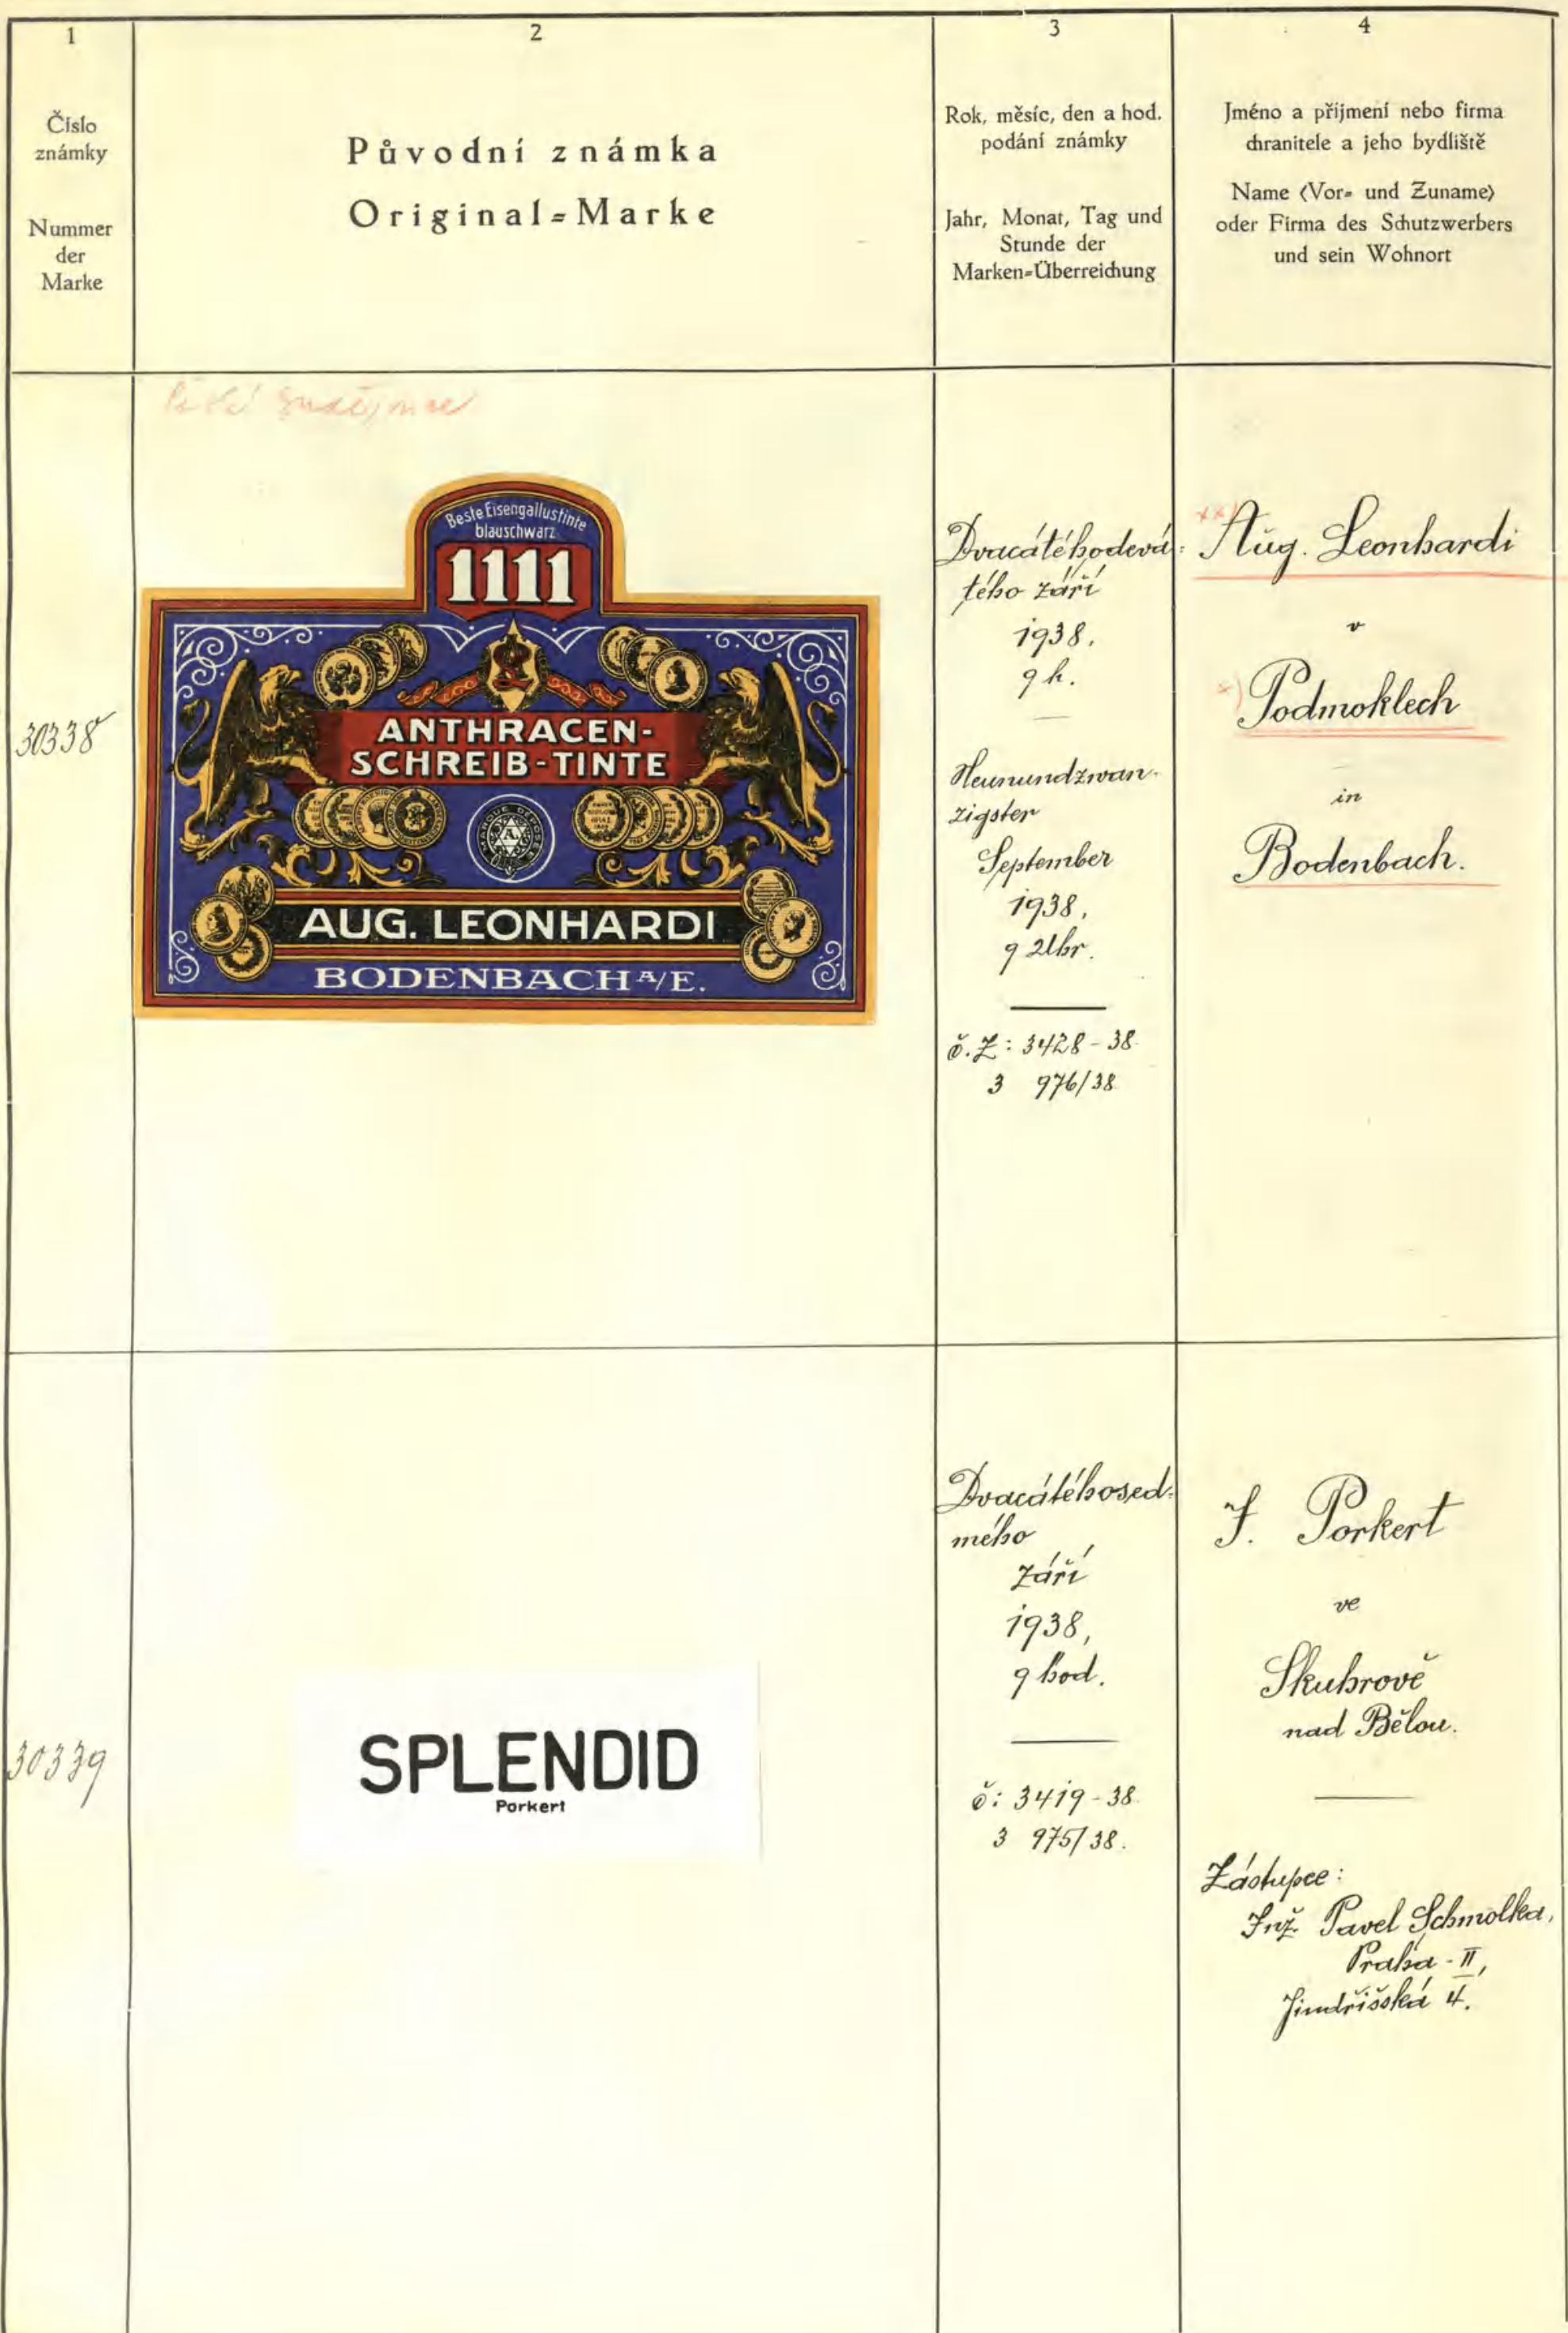 1
Číslo
známky
Nummer
der
Marke
2
Původní známka
Original-Marke
3
Rok, měsíc, den a hod.
podání známky
Jahr, Monat, Tag und
Stunde der
Marken-Überreichung
4
Jméno a přijmení nebo firma
chranitele a jeho bydliště
Name (Vor- und Zuname)
oder Firma des Schutzwerbers
und sein Wohnort
30338
Beste Eisengallustinte
blauschwarz
1111
L
ANTHRACEN-
SCHREIB-TINTE
MARQUE DÉPOSÉE
A.
AUG. LEONHARDI
BODENBACH A/E.
Dvacátéhodevá-
tého září
1938,
9 h.
Neunundzwan-
zigster
September
1938,
9 Uhr.
č.Z: 3428-38
3 976/38
xx) Aug. Leonhardi
v
x) Podmoklech
in
Bodenbach.
30339
SPLENDID
Porkert
Dvacátéhosed-
mého
září
1938,
9 hod.
č: 3419-38
3 975/38.
J. Porkert
ve
Skuhrově
nad Bělou.
Zástupce:
Inž. Pavel Schmolka,
Praha-II,
Jindřišská 4.